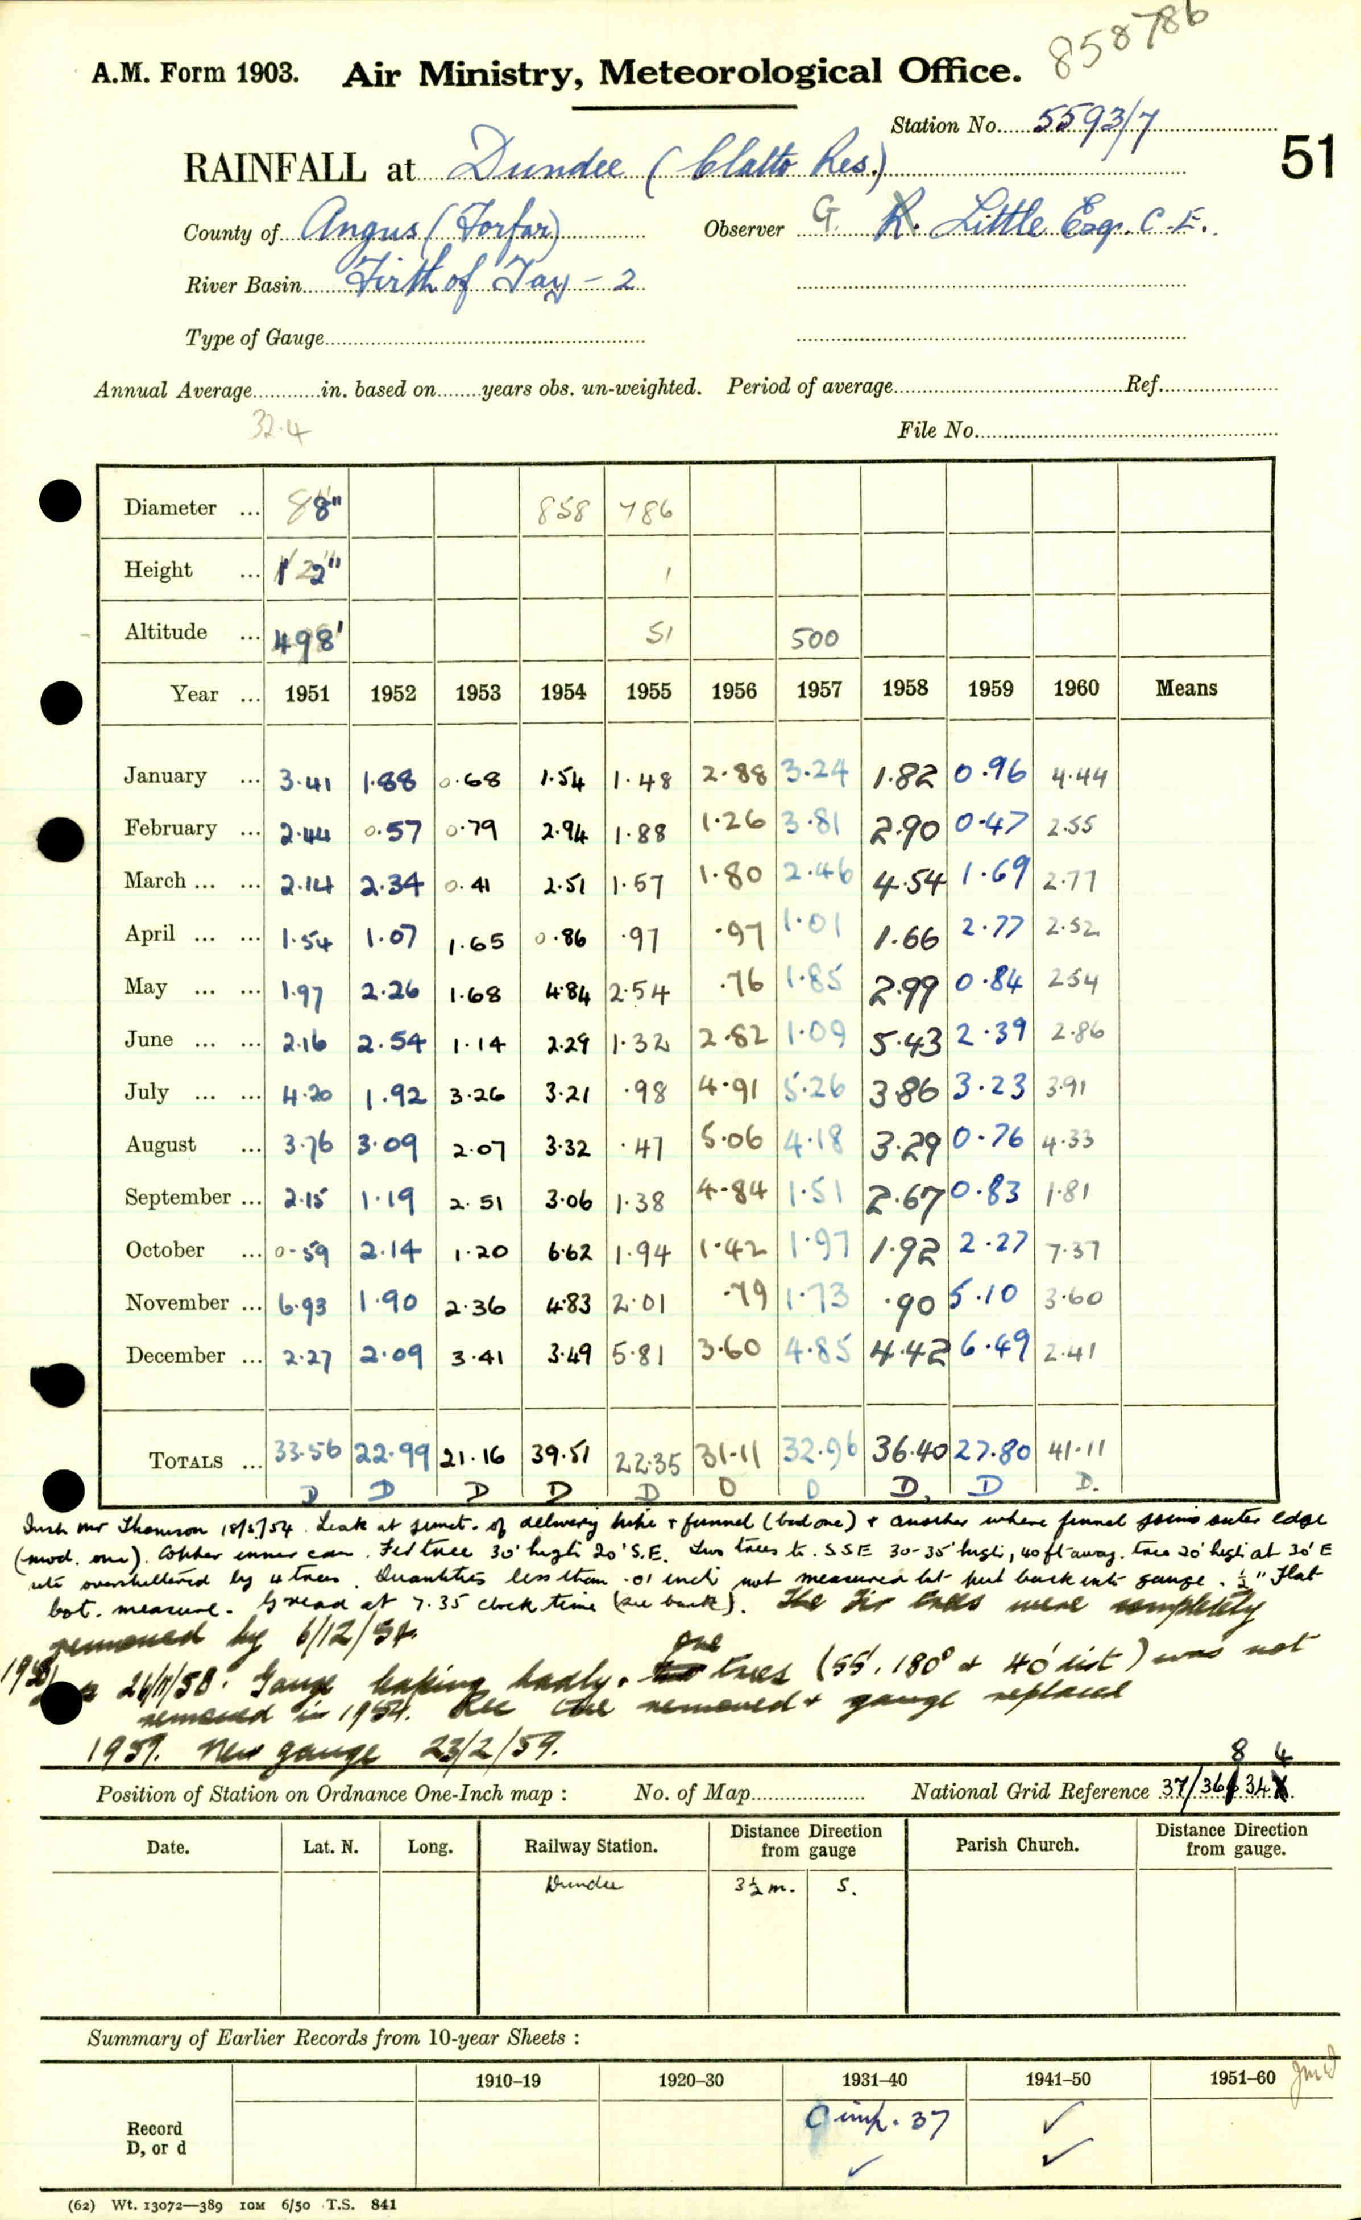 858786
A.M. Form 1903. Air Ministry, Meteorological Office.
Station No. 5593/7
51
RAINFALL at Dundee (Clatto Res.)
County of Angus (Forfar) Observer G R. Little Esq. C.E.
River Basin Firth of Tay - 2
Type of Gauge
Annual Average in. based on years obs. un-weighted. Period of average Ref.
32.4
File No.
Diameter ... 8" 858 786
Height ... 1' 2" 1
Altitude ... 498' 51 500
Year ... 1951 1952 1953 1954 1955 1956 1957 1958 1959 1960 Means
January ... 3.41 1.88 0.68 1.54 1.48 2.88 3.24 1.82 0.96 4.44
February ... 2.44 0.57 0.79 2.94 1.88 1.26 3.81 2.90 0.47 2.55
March ... ... 2.14 2.34 0.41 2.51 1.57 1.80 2.46 4.54 1.69 2.77
April ... ... 1.54 1.07 1.65 0.86 .97 .97 1.01 1.66 2.77 2.52
May ... ... 1.97 2.26 1.68 4.84 2.54 .76 1.85 2.99 0.84 2.54
June ... ... 2.16 2.54 1.14 2.29 1.32 2.82 1.09 5.43 2.39 2.86
July ... ... 4.20 1.92 3.26 3.21 .98 4.91 5.26 3.86 3.23 3.91
August ... 3.76 3.09 2.07 3.32 .47 5.06 4.18 3.29 0.76 4.33
September ... 2.15 1.19 2.51 3.06 1.38 4.84 1.51 2.67 0.83 1.81
October ... 0.59 2.14 1.20 6.62 1.94 1.42 1.97 1.92 2.27 7.37
November ... 6.93 1.90 2.36 4.83 2.01 .79 1.73 .90 5.10 3.60
December ... 2.27 2.09 3.41 3.49 5.81 3.60 4.85 4.42 6.49 2.41
TOTALS ... 33.56 22.99 21.16 39.51 22.35 31.11 32.96 36.40 27.80 41.11
D D D D D D D D. D D.
Insp. Mr Thomson 18/5/54. Leak at junct. of delivery tube + funnel (bad one) + another where funnel joins outer edge
(mod. one). Copper inner can. Fir tree 30' high 20' S.E. Two trees to SSE 30-35' high, 40 ft away. tree 20' high at 30' E
site oversheltered by 4 trees. Quantities less than .01 inch not measured but put back into gauge. ½" Flat
bot. measure. G read at 7.35 clock time (see back). The Fir trees were completely
removed by 6/12/54.
26/11/58. Gauge leaking badly. one trees (55', 180° & 40' dist) was not
removed in 1954. Rec tree removed + gauge replaced
1959. New gauge 23/2/59.
8 4
Position of Station on Ordnance One-Inch map : No. of Map National Grid Reference 37/36 34
Date. Lat. N. Long. Railway Station. Distance from gauge Direction Parish Church. Distance Direction from gauge.
Dundee 3½ m. S.
Summary of Earlier Records from 10-year Sheets :
1910–19 1920–30 1931–40 1941–50 1951–60
Record D, or d imp. 37 ✓
✓ ✓
(62) Wt. 13072—389 10M 6/50 T.S. 841